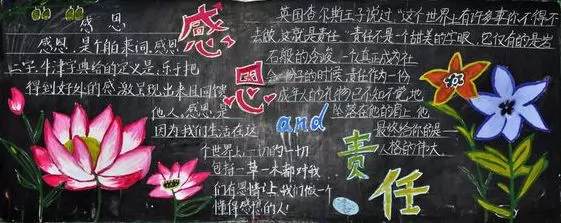 感恩
感恩，是个舶来词，感恩
二字，牛津字典给的定义是：乐于把
得到好处的感激呈现出来且回馈
他人，感恩是
因为我们生活在这
个世界上，一切的一切
包括一草一木都对我
们有恩情！让我们做一个
懂得感恩的人！
感恩
and
责任
英国查尔斯王子说过，“这个世界上有许多事你不得不
去做，这就是责任”责任不是一个甜美的字眼，它仅有的是岩
石般的冷峻，一个人真正成为社
会一份子的时候，责任作为一份
成年人的礼物已不知不觉地
坠落在他的肩上，他
最终给你的是一
人格的伟大